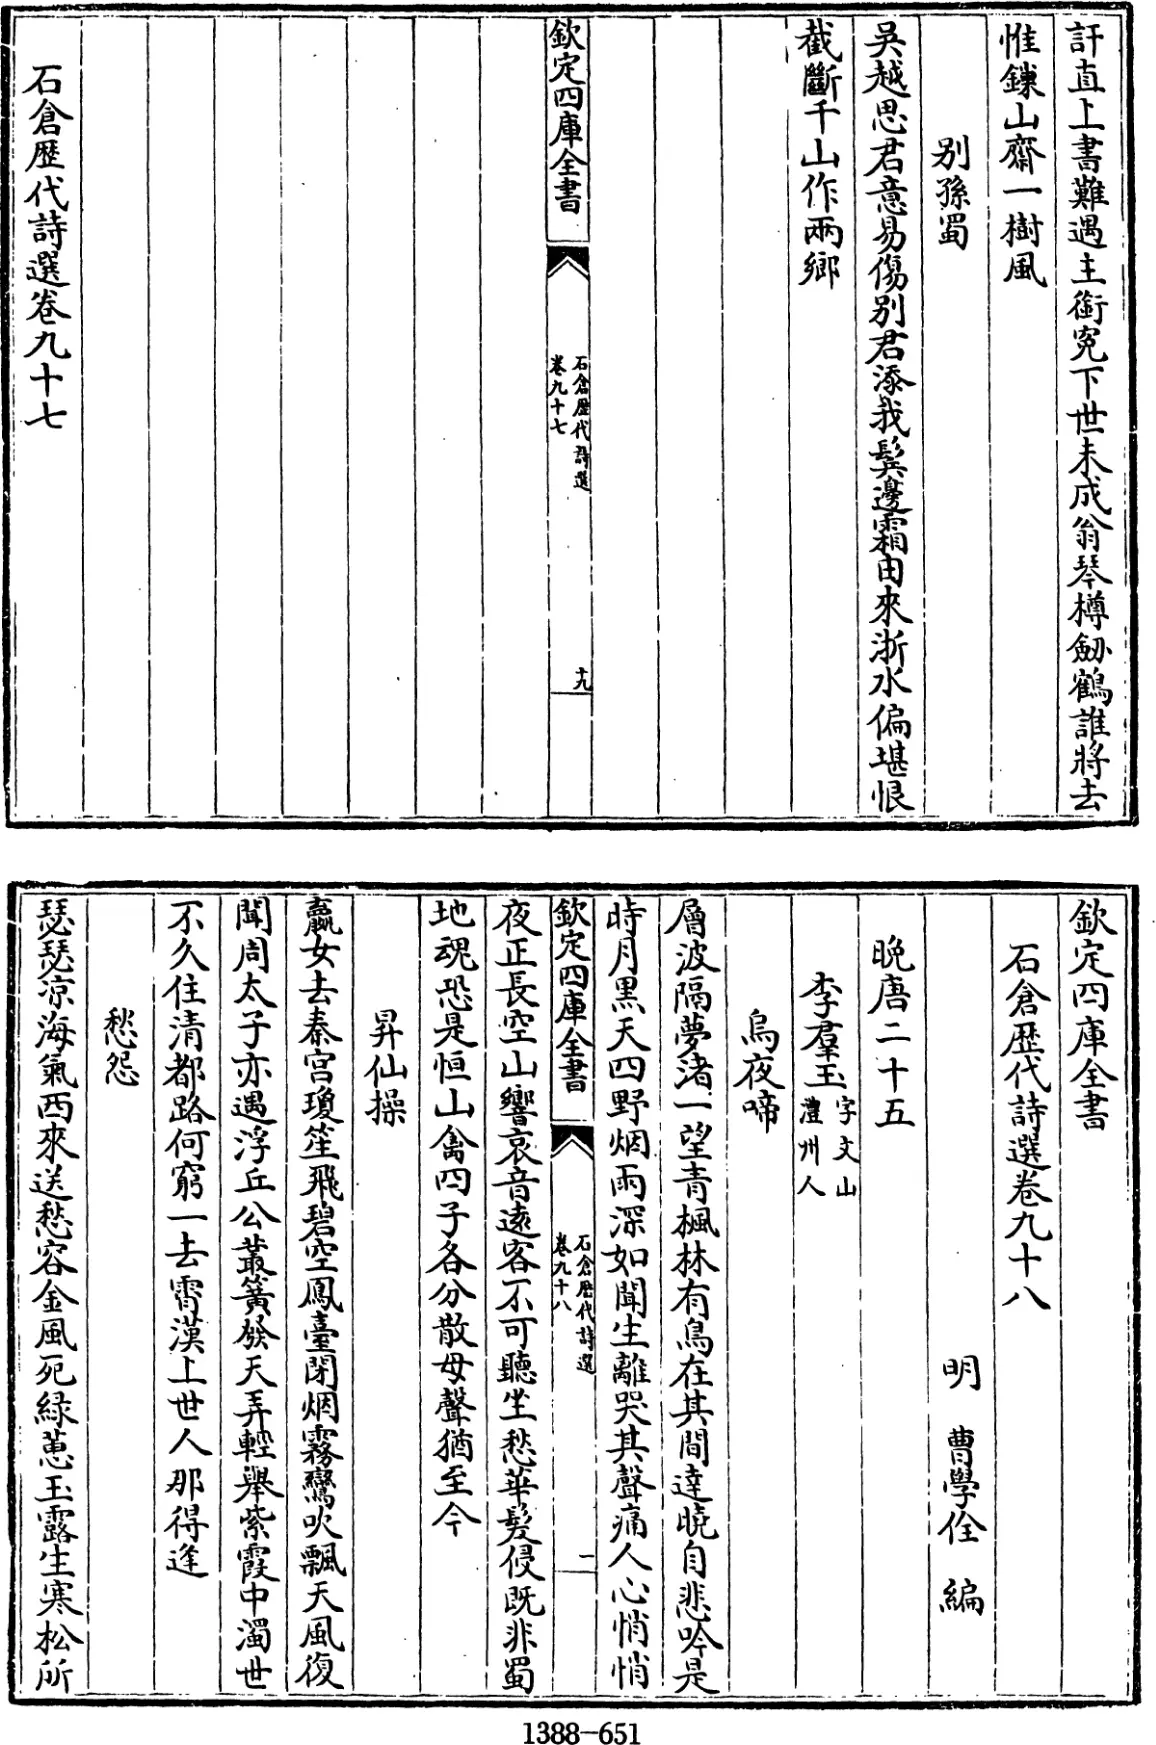 訐直上書難遇主銜寃下世未成翁琴樽劒鶴誰將去
惟鏁山齋一樹風
别孫蜀
吳越思君意易傷别君添我鬂邊霜由來浙水偏堪恨
截斷千山作兩鄉
欽定四庫全書
石倉歷代詩選
卷九十七
十九
石倉歷代詩選卷九十七
欽定四庫全書
石倉歷代詩選卷九十八
明 曹學佺 編
晚唐二十五
李羣玉 字文山
澧州人
烏夜啼
層波隔夢渚一望青楓林有鳥在其間達曉自悲吟是
時月黒天四野烟雨深如聞生離哭其聲痛人心悄悄
欽定四庫全書
石倉歷代詩選
卷九十八
一
夜正長空山響哀音遠客不可聽坐愁華髮侵既非蜀
地魂恐是恒山禽四子各分散母聲猶至今
昇仙操
嬴女去秦宮瓊笙飛碧空鳳臺閉烟霧鸞吹飄天風復
聞周太子亦遇浮丘公叢簧發天弄輕舉紫霞中濁世
不久住清都路何窮一去霄漢上世人那得逢
愁怨
瑟瑟凉海氣西來送愁容金風死緑蕙玉露生寒松所
1388-651